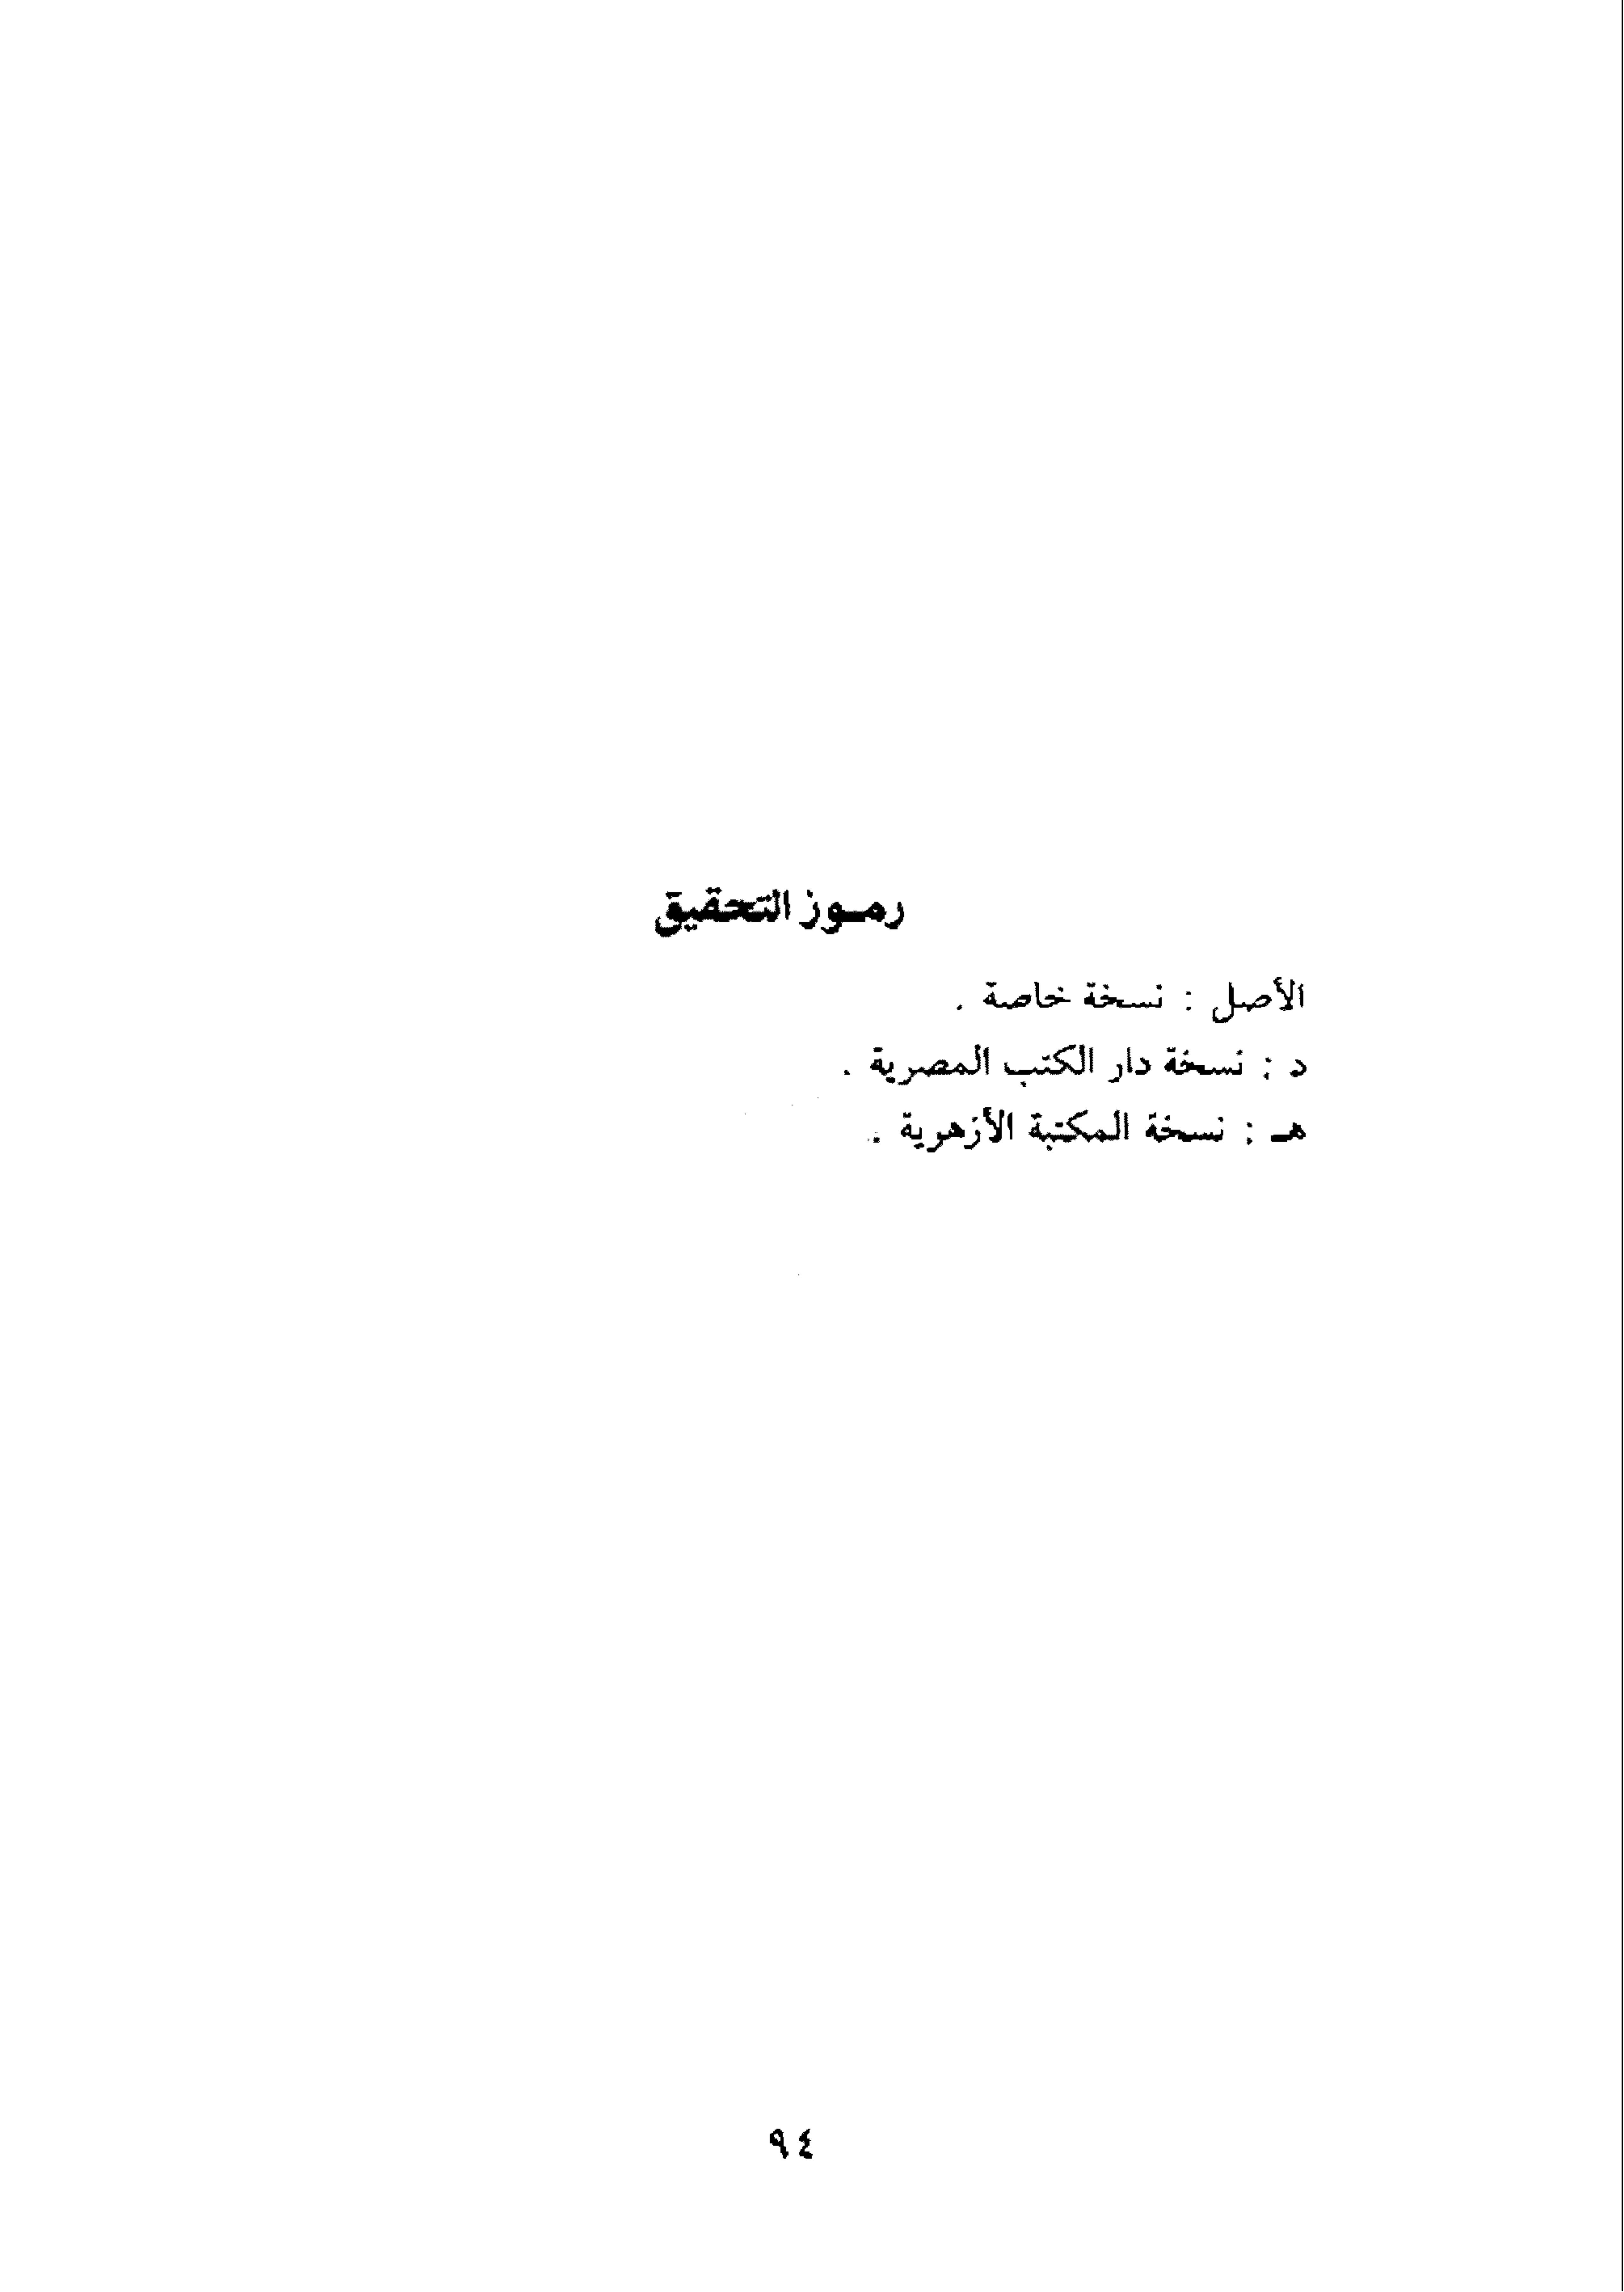 رمـوز التحقيق
الأصل : نسخة خاصة .
د : نسخة دار الكتب المصرية .
هـ : نسخة المكتبة الأزهرية .
٩٤